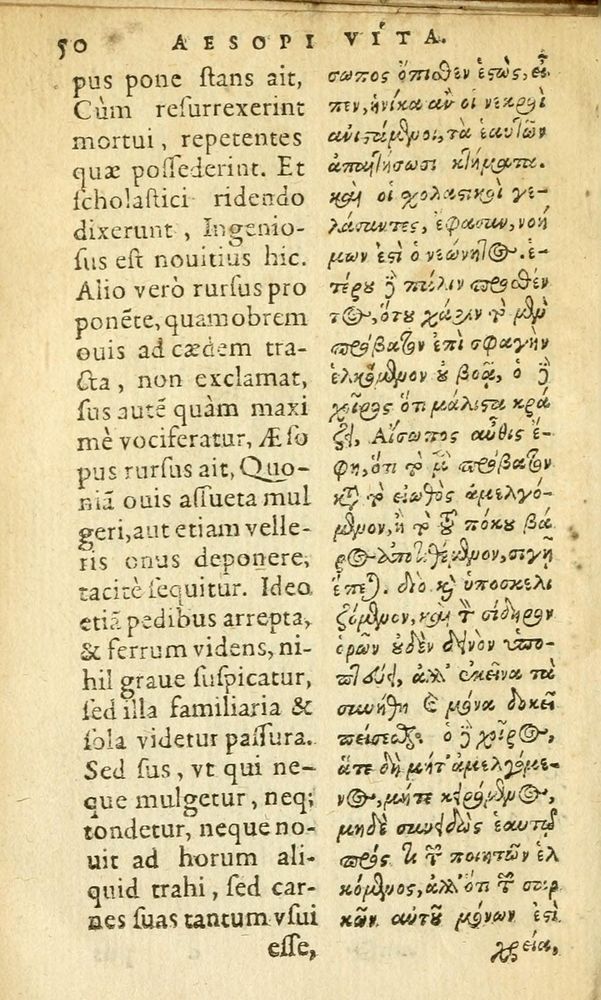 50 AESOPI VITA.
pus pone ſtans ait,
Cùm reſurrexerint
mortui, repetentes
quæ poſſederint. Et
ſcholaſtici ridendo
dixerunt, Ingenio-
ſus eſt nouitius hic.
Alio verò rurſus pro
ponẽte, quamobrem
ouis ad cædem tra-
cta, non exclamat,
ſus autẽ quàm maxi
mè vociferatur, Æſo
pus rurſus ait, Quo-
niã ouis aſſueta mul
geri, aut etiam velle-
ris onus deponere,
tacitè ſequitur. Ideo
etiã pedibus arrepta,
& ferrum videns, ni-
hil graue ſuſpicatur,
ſed illa familiaria &
ſola videtur paſſura.
Sed ſus, vt qui ne-
que mulgetur, neq;
tondetur, neque no-
uit ad horum ali-
quid trahi, ſed car-
nes ſuas tantum vſui
eſſe,
σωπος ὄπιθεν ἑστὼς, εἶ-
πεν, ἡνίκα ἂν οἱ νεκροὶ
ἀνιστάμενοι, τὰ ἑαυτῶν
ἀπαιτήσωσι κτήματα.
καὶ οἱ σχολαστικοὶ γε-
λάσαντες, ἔφασαν, νοή
μων ἐστὶ ὁ νεώνητος. ἑ-
τέρου δὲ πάλιν προθέν
τος, ὅτου χάριν τὸ μὲν
πρόβατον ἐπὶ σφαγὴν
ἑλκόμενον οὐ βοᾷ, ὁ δὲ
χοῖρος ὅτι μάλιστα κρά
ζει, Αἴσωπος αὖθις ἔ-
φη, ὅτι τὸ μὲν πρόβατον
κατὰ τὸ εἰωθὸς ἀμελγό-
μενον, ἢ τὸ τοῦ πόκου βά
ρος ἀποτιθέμενον, σιγῇ
ἕπεται. διὸ καὶ ὑποσκελι
ζόμενον, καὶ τὸν σίδηρον
ὁρῶν οὐδὲν δεινὸν ὑπο-
πτεύει, ἀλλ' ἐκεῖνα τὰ
συνήθη καὶ μόνα δοκεῖ
πείσεσθαι. ὁ δὲ χοῖρος,
ἅτε δὴ μήτ' ἀμελγόμε-
νος, μήτε κειρόμενος,
μηδὲ συνειδὼς ἑαυτῷ
πρός τι τῶν ποιητῶν ἑλ
κόμενος, ἀλλ' ὅτι τῶν σαρ
κῶν αὐτοῦ μόνων ἐστὶ
χρεία,